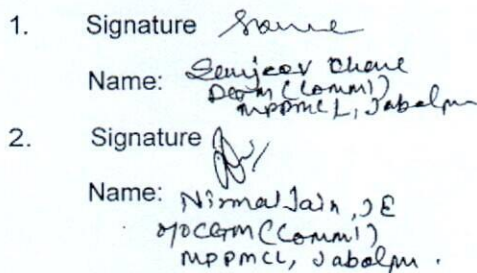 1. Signature
Name: Sanjeev
DGM (Comml)
MPPMCL, Jabalpur
2. Signature
Name: Nirmal Jain, JE
O/O CGM (Comml)
MPPMCL, Jabalpur.